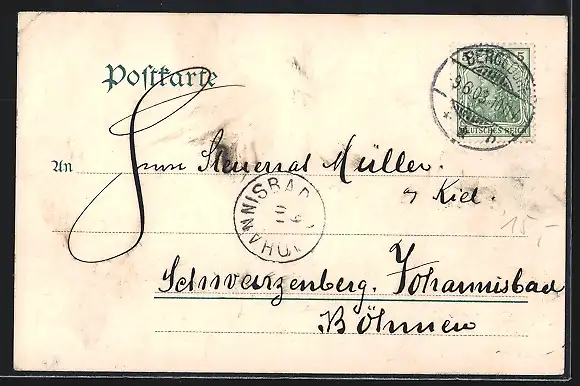 Postkarte
5
BERGEDORF
9.6.03
DEUTSCHES REICH
An Herrn Steuerrat Müller.
Kiel.
JOHANNISBAD
15,-
Schwarzenberg. Johannisbad
Böhmen